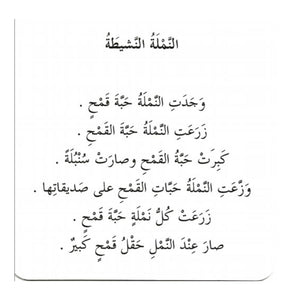 النَّمْلَةُ النَّشيطَةُ
وَجَدَتِ النَّمْلَةُ حَبَّةَ قَمْحٍ .
زَرَعَتِ النَّمْلَةُ حَبَّةَ القَمْحِ .
كَبِرَتْ حَبَّةُ القَمْحِ وصارَتْ سُنْبُلَةً .
وَزَّعَتِ النَّمْلَةُ حَبّاتِ القَمْحِ على صَديقاتِها .
زَرَعَتْ كُلُّ نَمْلَةٍ حَبَّةَ قَمْحٍ .
صارَ عِنْدَ النَّمْلِ حَقْلُ قَمْحٍ كَبيرٌ .